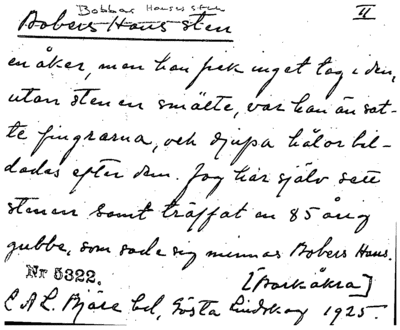 Bobbar Hanses sten
II
Bobers Hans sten
en åker, man han fick inget tag i den,
utan stenen smälte, var han än sat-
te fingrarna, och djupa hålor bil-
dades efter dem. Jag har själv sett
stenen samt träffat en 85 årig
gubbe, som sade sig minnas Bobers Hans.
Nr 5322.
[Barkåkra]
C A L. Bjäre hd, Gösta Lindskog 1925.